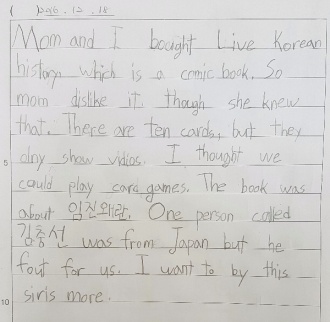 ( ) 2016. 12. 18
Mom and I bought Live Korean
history which is a comic book. So
mom dislike it. though she knew
that. There are ten cards, but they
olny show vidios. I thought we
could play card games. The book was
about 임진왜란. One person called
김충선 was from Japan but he
fout for us. I want to by this
siris more.
5
10